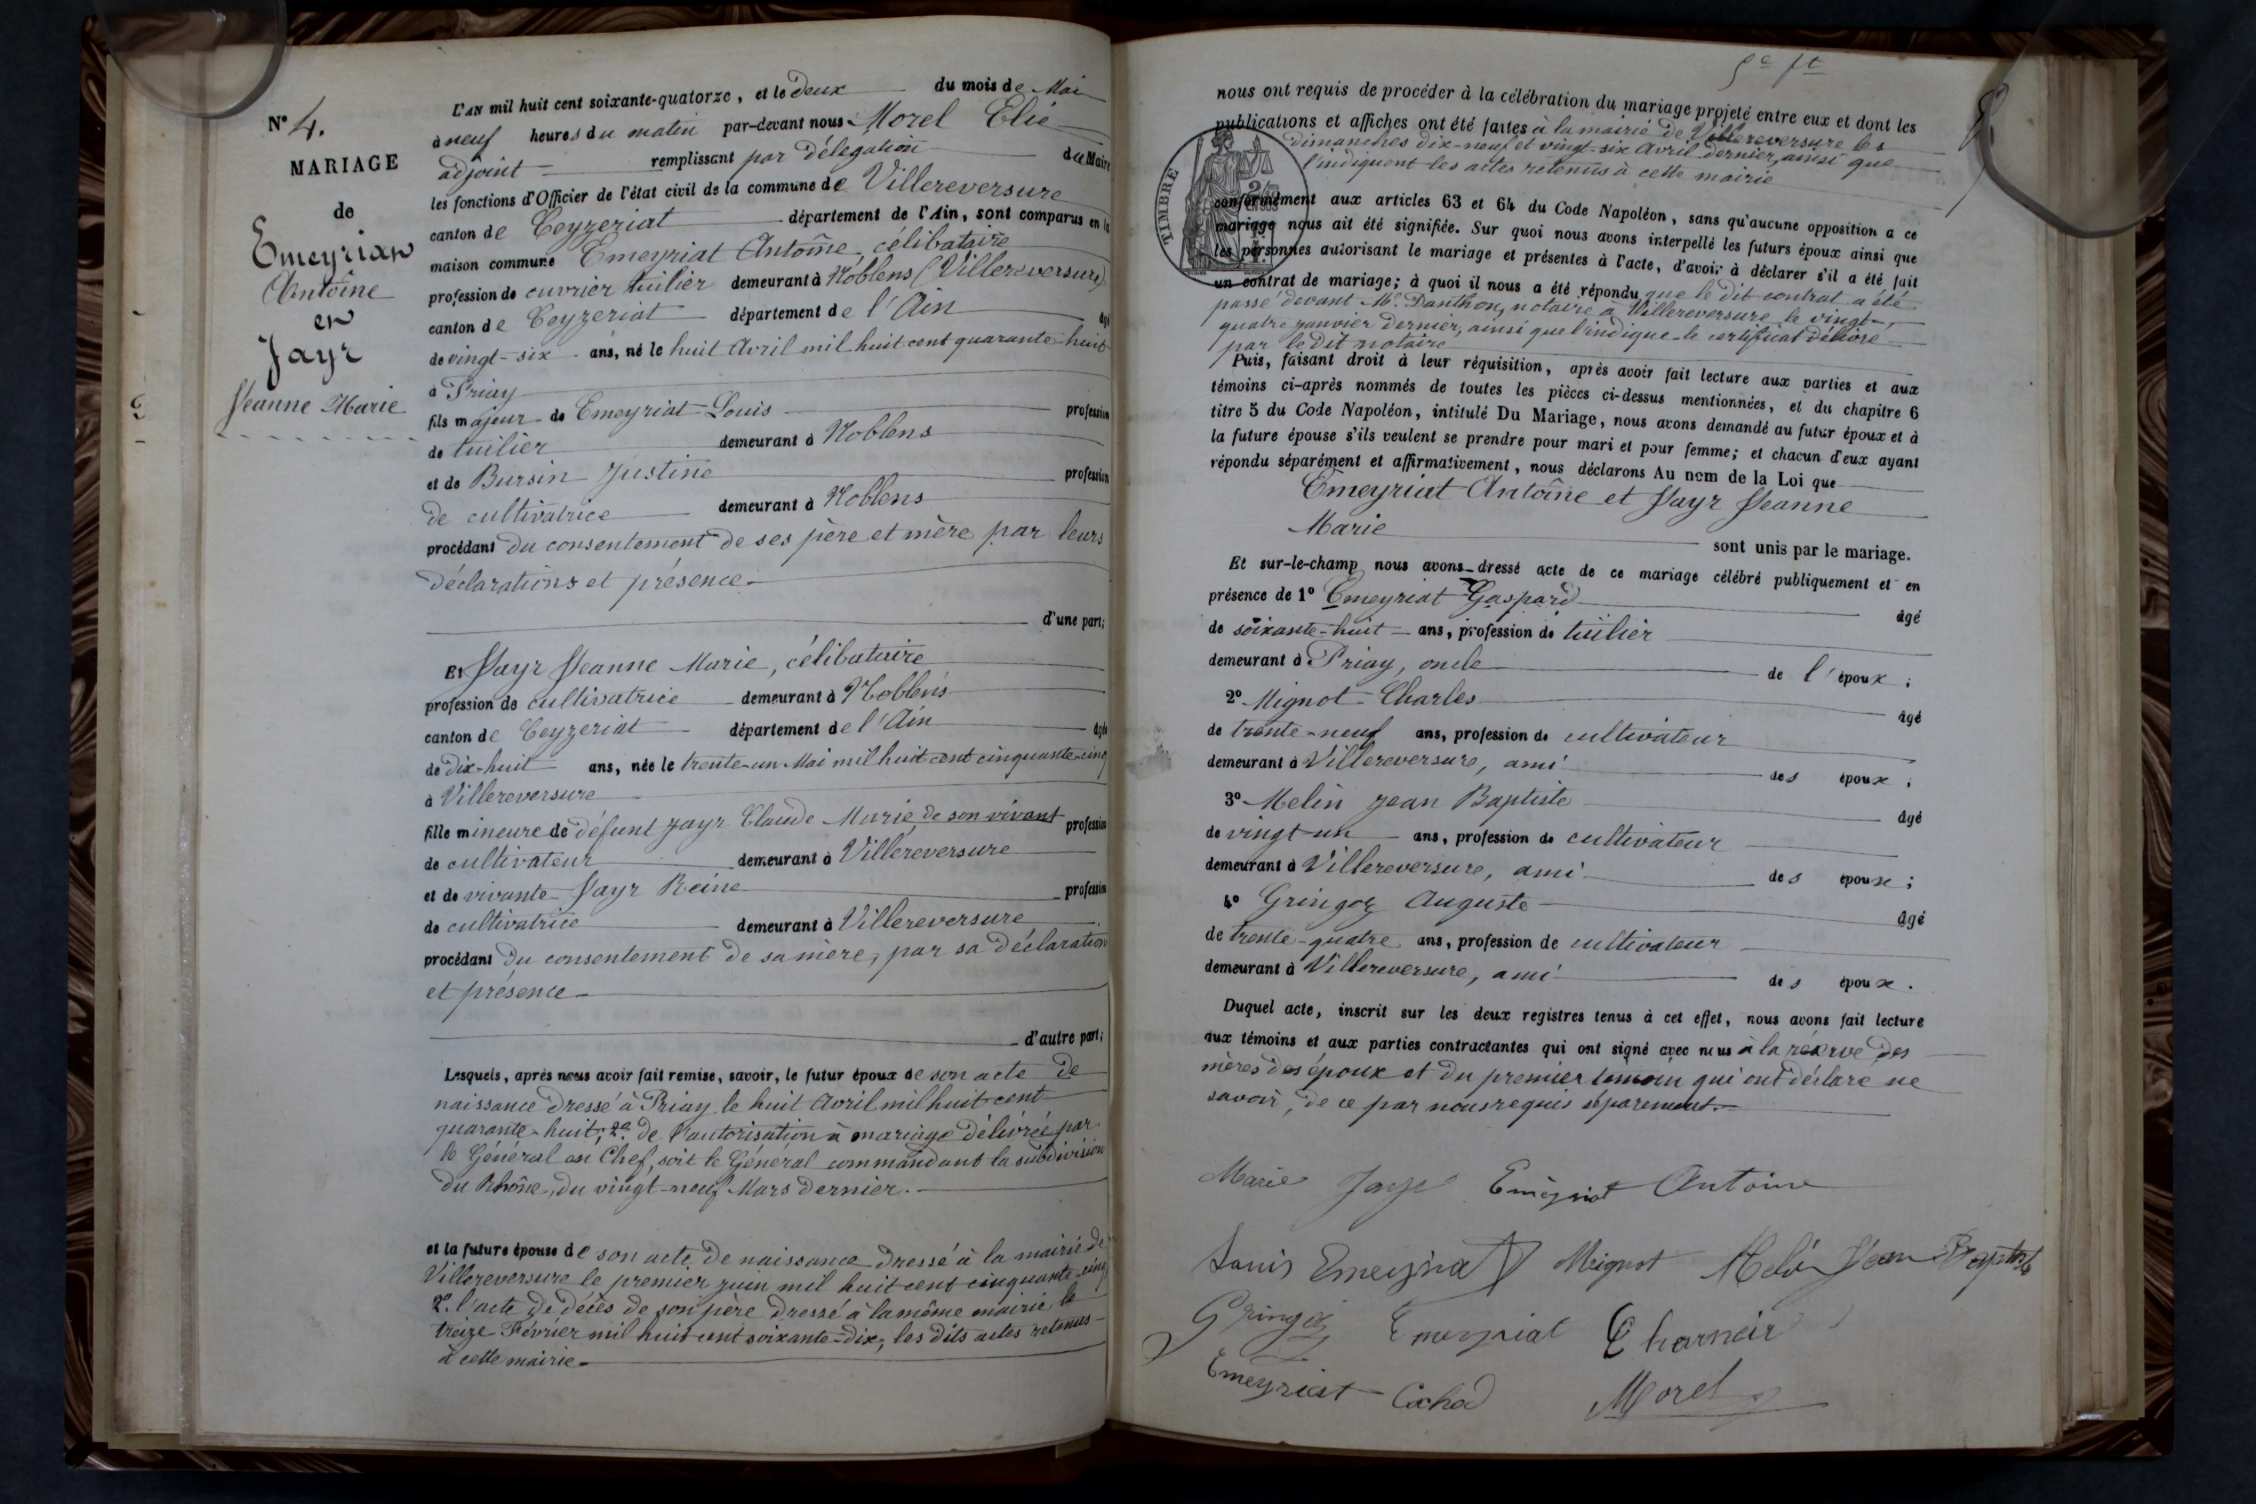 N° 4.
MARIAGE
de
Emeyriat
Antoine
et
Jayr
Jeanne Marie
L'AN mil huit cent soixante-quatorze, et le Deux du mois de Mai
à neuf heures du matin par-devant nous Morel Elie
adjoint remplissant par Délégation du Maire
les fonctions d'Officier de l'état civil de la commune de Villereversure
canton de Ceyzeriat département de l'Ain, sont comparus en la
maison commune Emeyriat Antoine, célibataire
profession de ouvrier tuilier demeurant à Noblens (Villereversure)
canton de Ceyzeriat département de l'Ain âgé
de vingt-six ans, né le huit Avril mil huit cent quarante-huit
à Priay
fils majeur de Emeyriat Louis profession
de tuilier demeurant à Noblens
et de Bursin Justine profession
de cultivatrice demeurant à Noblens
procédant du consentement de ses père et mère par leurs
déclarations et présence
d'une part;
Et Jayr Jeanne Marie, célibataire
profession de cultivatrice demeurant à Noblens
canton de Ceyzeriat département de l'Ain âgée
de Dix-huit ans, née le trente-un Mai mil huit cent cinquante-cinq
à Villereversure
fille mineure de défunt Jayr Claude Marie de son vivant profession
de cultivateur demeurant à Villereversure
et de vivante Jayr Reine profession
de cultivatrice demeurant à Villereversure
procédant du consentement de sa mère, par sa déclaration
et présence
d'autre part;
Lesquels, après nous avoir fait remise, savoir, le futur époux de son acte de
naissance dressé à Priay le huit Avril mil huit cent
quarante-huit; 2° de l'autorisation à mariage délivrée par
le Général en Chef, soit le Général commandant la subdivision
du Rhône, du vingt-neuf Mars dernier.
et la future épouse de son acte de naissance dressé à la mairie de
Villereversure le premier juin mil huit cent cinquante-cinq
2° l'acte de décès de son père dressé à la même mairie le
treize Février mil huit cent soixante-dix, les dits actes retenus
à cette mairie
nous ont requis de procéder à la célébration du mariage projeté entre eux et dont les
publications et affiches ont été faites à la mairie de Villereversure les
dimanches dix-neuf et vingt-six Avril dernier, ainsi que
l'indiquent les actes retenus à cette mairie
TIMBRE
conformément aux articles 63 et 64 du Code Napoléon, sans qu'aucune opposition a ce
mariage nous ait été signifiée. Sur quoi nous avons interpellé les futurs époux ainsi que
les personnes autorisant le mariage et présentes à l'acte, d'avoir à déclarer s'il a été fait
un contrat de mariage; à quoi il nous a été répondu que le dit contrat a été
passé devant Me Panthon, notaire à Villereversure le vingt-
quatre janvier dernier, ainsi que l'indique le certificat délivré
par le dit notaire
Puis, faisant droit à leur réquisition, après avoir fait lecture aux parties et aux
témoins ci-après nommés de toutes les pièces ci-dessus mentionnées, et du chapitre 6
titre 5 du Code Napoléon, intitulé Du Mariage, nous avons demandé au futur époux et à
la future épouse s'ils veulent se prendre pour mari et pour femme; et chacun d'eux ayant
répondu séparément et affirmativement, nous déclarons Au nom de la Loi que
Emeyriat Antoine et Jayr Jeanne
Marie
sont unis par le mariage.
Et sur-le-champ nous avons dressé acte de ce mariage célébré publiquement et en
présence de 1° Emeyriat Gaspard âgé
de soixante-huit ans, profession de tuilier
demeurant à Priay, oncle de l'époux;
2° Mignot Charles âgé
de trente-neuf ans, profession de cultivateur
demeurant à Villereversure, ami des époux;
3° Melin Jean Baptiste âgé
de vingt-un ans, profession de cultivateur
demeurant à Villereversure, ami des époux;
4° Gringoz Auguste âgé
de trente-quatre ans, profession de cultivateur
demeurant à Villereversure, ami des époux.
Duquel acte, inscrit sur les deux registres tenus à cet effet, nous avons fait lecture
aux témoins et aux parties contractantes qui ont signé avec nous à la réserve des
mères des époux et du premier témoin qui ont déclaré ne
savoir, de ce par nous requis séparément.
Marie Jayr Emeyriat Antoine
Louis Emeyriat Mignot Melin Jean Baptiste
Gringoz Emeyriat Charnoir
Emeyriat Cochod Morel